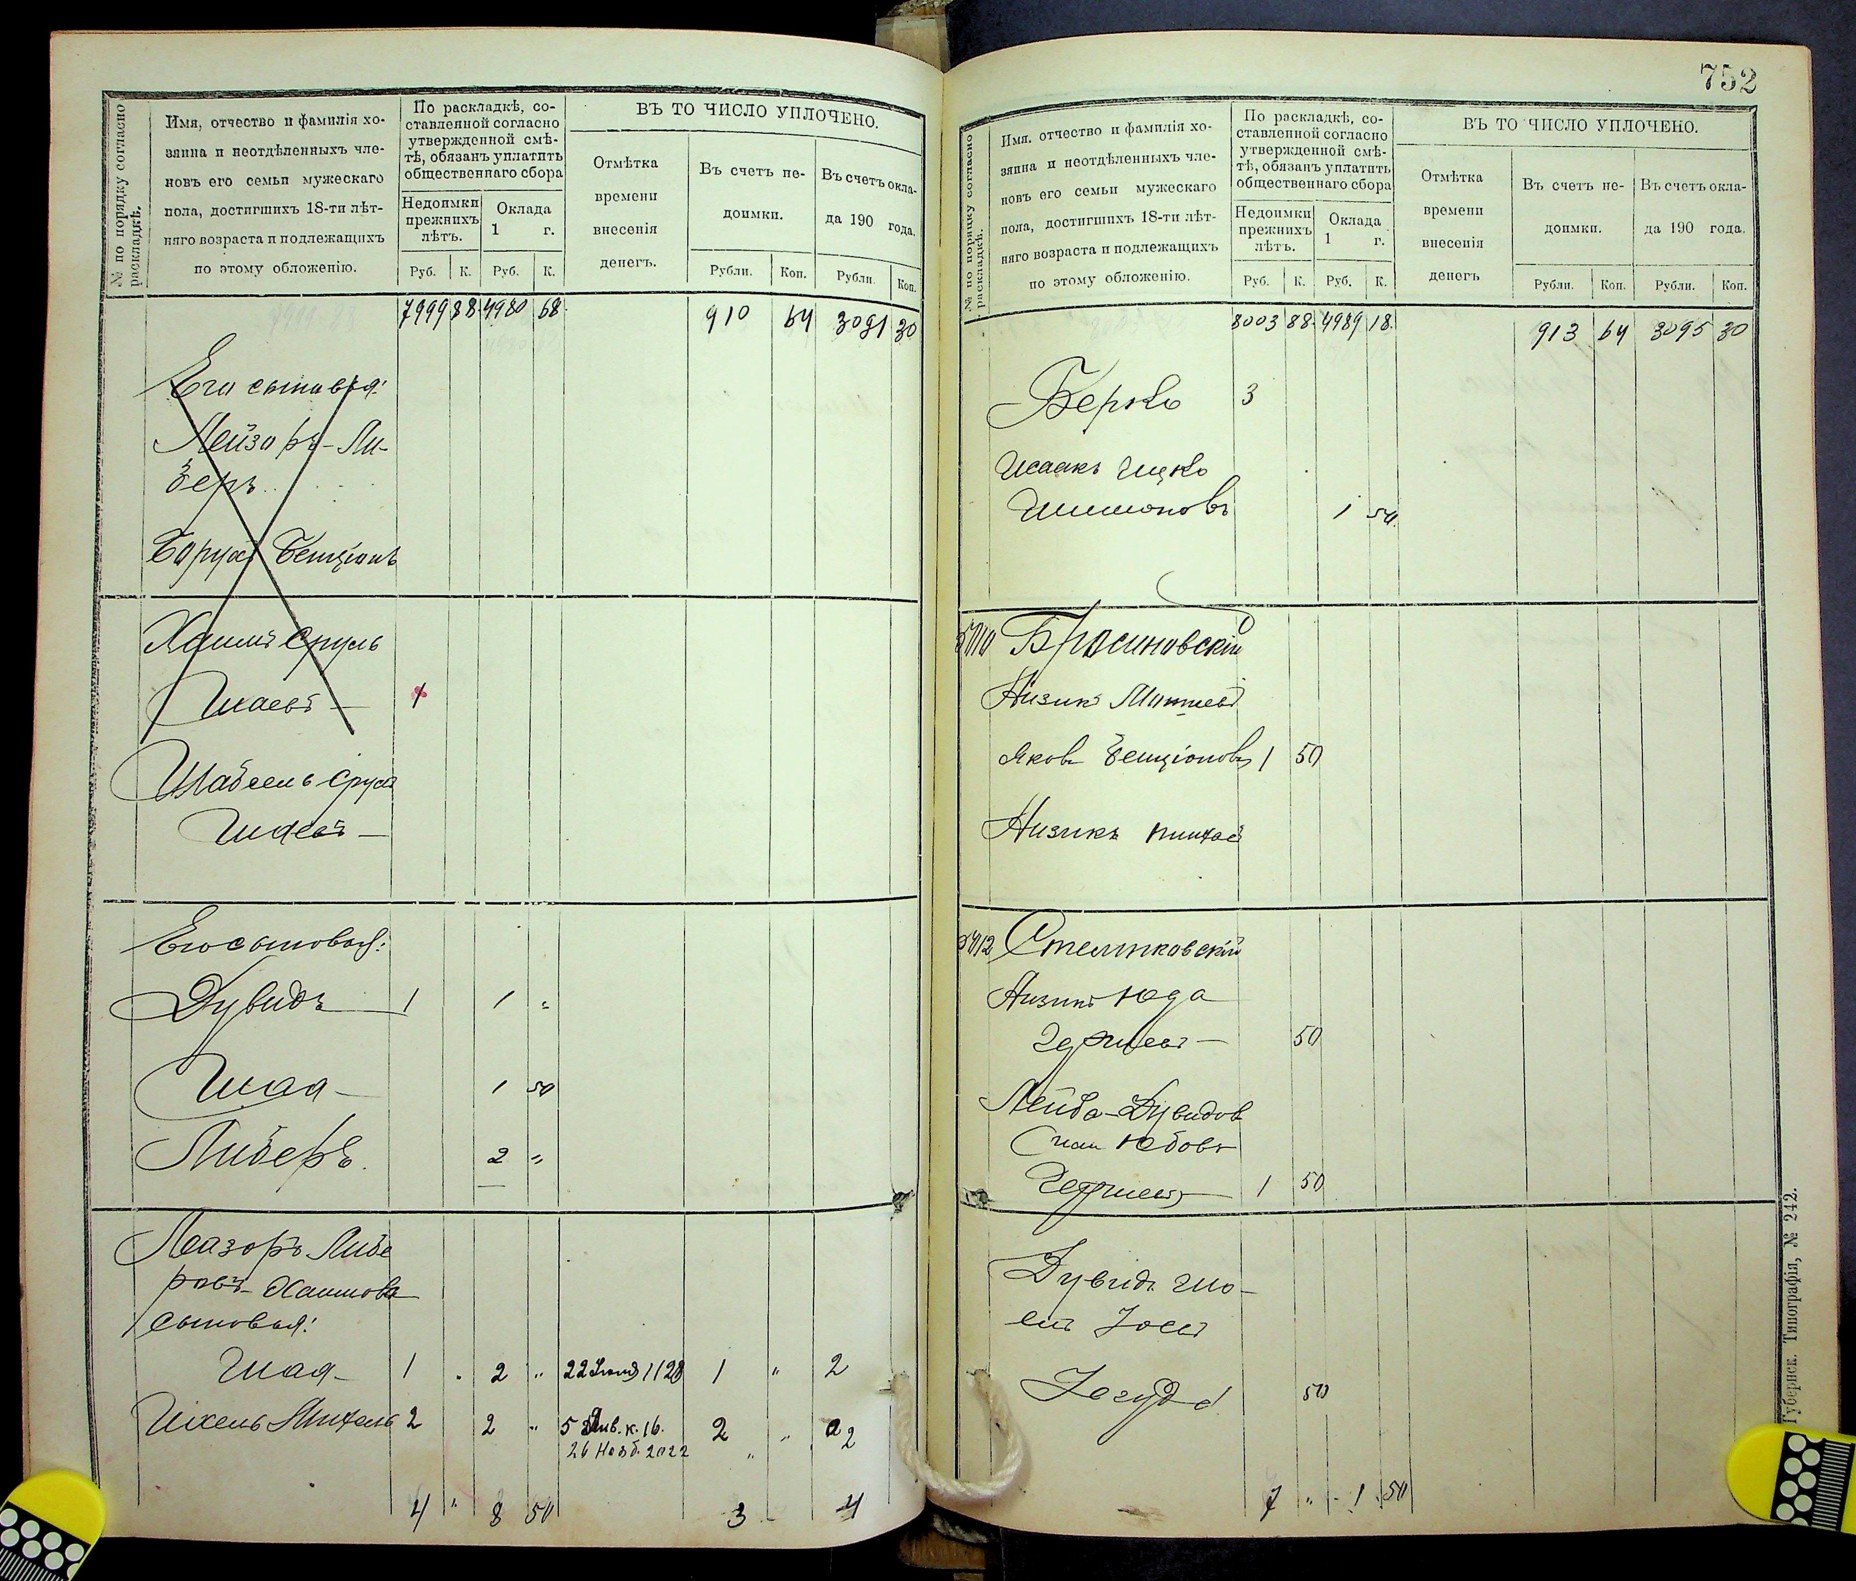 № по порядку согласно раскладкѣ.
Имя, отчество и фамилія хо-
зяина и неотдѣленныхъ чле-
новъ его семьи мужескаго
пола, достигшихъ 18-ти лѣт-
няго возраста и подлежащихъ
по этому обложенію.
По раскладкѣ, со-
ставленной согласно
утвержденной смѣ-
тѣ, обязанъ уплатить
общественнаго сбора
Недоимки
прежнихъ
лѣтъ.
Оклада
1 г.
Руб. К. Руб. К.
ВЪ ТО ЧИСЛО УПЛОЧЕНО.
Отмѣтка
времени
внесенія
денегъ.
Въ счетъ не-
доимки.
Въ счетъ окла-
да 190 года.
Рубли. Коп. Рубли. Коп.
7999 88 4980 68 910 64 3091 30
Его сыновья:
Лейзоръ-Ли-
беръ
Борухъ Бенціонъ
Хаимъ Сруль
Шаевъ 1
Шабсель Срул
Шаевъ
Его сыновья:
Дувидъ 1 1 "
Шая 1 50
Либеръ 2 "
Лазоръ Либе
ровъ Хаимовъ
сыновья:
Шая 1 . 2 " 22 1128 1 " 2
Михель 2 2 " 5 Янв. к. 16. 2 " 2
26 Нояб. 2022 "
4 " 8 50 3 4
752
№ по порядку согласно раскладкѣ.
Имя, отчество и фамилія хо-
зяина и неотдѣленныхъ чле-
новъ его семьи мужескаго
пола, достигшихъ 18-ти лѣт-
няго возраста и подлежащихъ
по этому обложенію.
По раскладкѣ, со-
ставленной согласно
утвержденной смѣ-
тѣ, обязанъ уплатить
общественнаго сбора
Недоимки
прежнихъ
лѣтъ.
Оклада
1 г.
Руб. К. Руб. К.
ВЪ ТО ЧИСЛО УПЛОЧЕНО.
Отмѣтка
времени
внесенія
денегъ
Въ счетъ не-
доимки.
Въ счетъ окла-
да 190 года.
Рубли. Коп. Рубли. Коп.
8003 88 4989 18 913 64 3095 30
Берко 3
Исаакъ Ицко
Шимоновъ 1 50
Бросиновскій
Айзикъ
Яковъ Бенціоновъ 1 50
Айзикъ Пинхас
Айзикъ Юда
50
Лейба-Дувидов
1 50
Дувидъ Шо-
емъ
Іегуда 50
7 " 1 50
Губернск. Типографія, № 242.